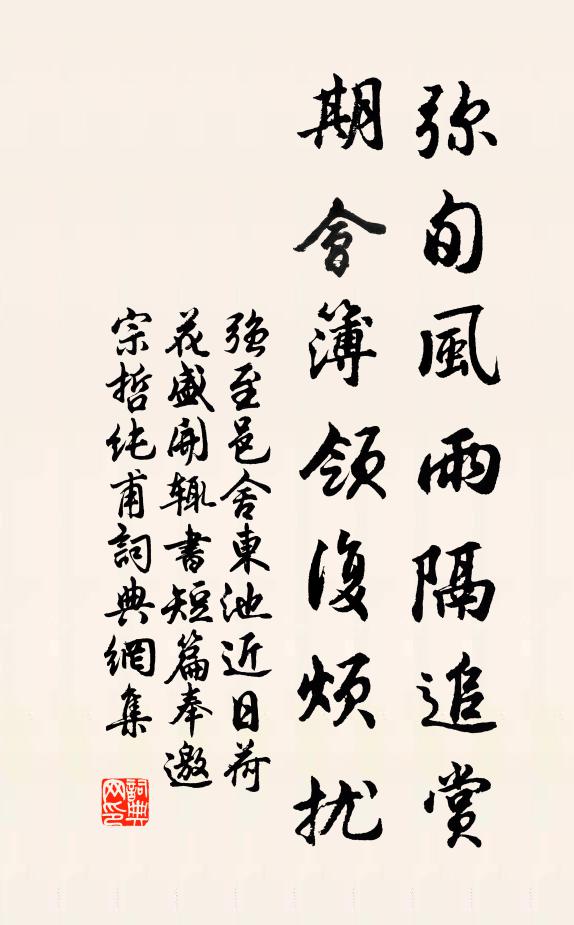 弥旬風雨隔追賞
期會簿領復煩擾
強至邑舍東池近日荷
花盛開輒書短篇奉邀
宗哲純甫詞典網集
詞典
网印